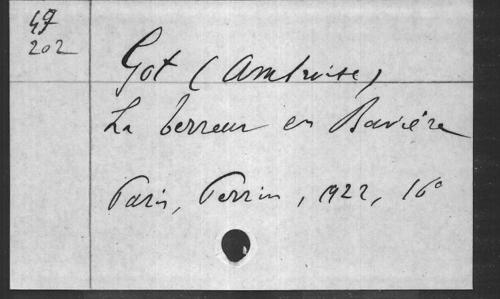 49
202
Got (Ambroise)
La terreur en Bavière
Paris, Perrin, 1922, 16°